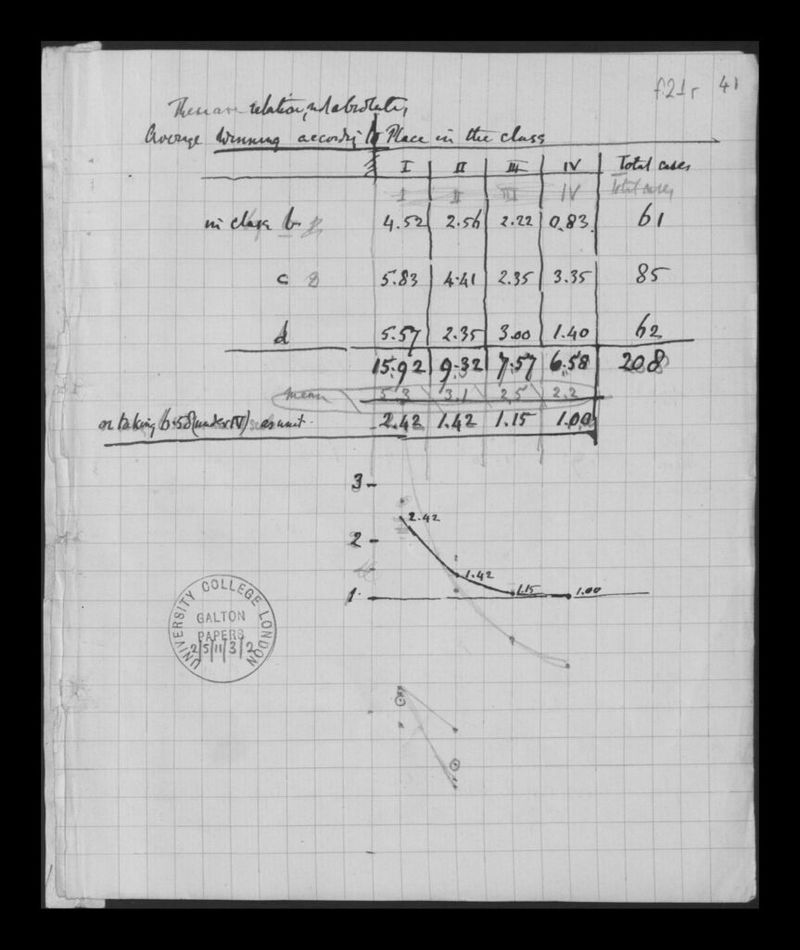 f.21r 41
These are relation, not absolute,
Average Winning according to Place in the class
I II III IV Total cases
I II III IV Total cases
in class b 4.52 2.56 2.22 0.83 61
c 5.83 4.41 2.35 3.35 85
d 5.57 2.35 3.00 1.40 62
15.92 9.32 7.57 6.58 208
mean 5.3 3.1 2.5 2.2
or taking 6.58 (under IV) as unit. 2.42 1.42 1.15 1.00
3
2.42
2
1.42
1.15 1.00
1
UNIVERSITY COLLEGE LONDON
GALTON
PAPERS
2/5/11/3/2